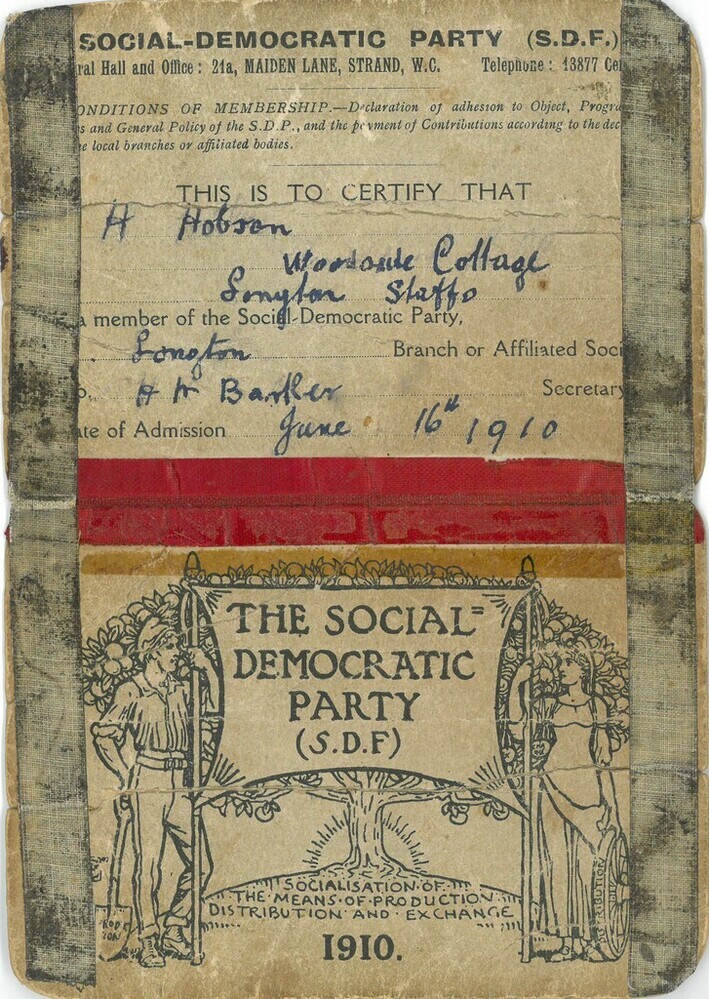 SOCIAL-DEMOCRATIC PARTY (S.D.F.)
ral Hall and Office: 21a, MAIDEN LANE, STRAND, W.C. Telephone: 13877 Ce
ONDITIONS OF MEMBERSHIP.—Declaration of adhesion to Object, Progra
s and General Policy of the S.D.P., and the payment of Contributions according to the dec
e local branches or affiliated bodies.
THIS IS TO CERTIFY THAT
H Hobson
Cottage
Longton Staffs
a member of the Social-Democratic Party,
Longton Branch or Affiliated Soci
H Barker Secretary
te of Admission June 16th 1910
THE SOCIAL=
DEMOCRATIC
PARTY
(S.D.F)
SOCIALISATION·OF·
·THE·MEANS·OF·PRODUCTION·
DISTRIBUTION·AND·EXCHANGE
1910.